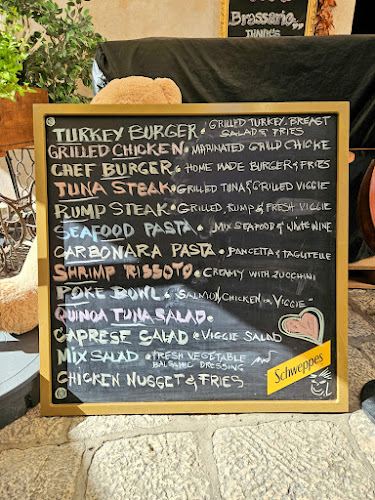 Brassario
THANKS
TURKEY BURGER • GRILLED TURKEY BREAST
SALAD & FRIES
GRILLED CHICKEN • MARINATED GRILLD CHICKE
CHEF BURGER • HOME MADE BURGER & FRIES
TUNA STEAK • GRILLED TUNA & GRILLED VIGGIE
RUMP STEAK • GRILLED RUMP & FRESH VIGGIE
SEAFOOD PASTA • MIX SEAFOOD & WHITE WINE
CARBONARA PASTA • PANCETTA & TAGLITELLE
SHRIMP RISSOTO • CREAMY WITH ZUCCHINI
POKE BOWL • SALMON, CHICKEN OR VIGGIE -
QUINOA TUNA SALAD •
CAPRESE SALAD • VIGGIE SALAD
MIX SALAD • FRESH VEGETABLE AND
BALSAMIC DRESSING
CHICKEN NUGGET & FRIES
Schweppes